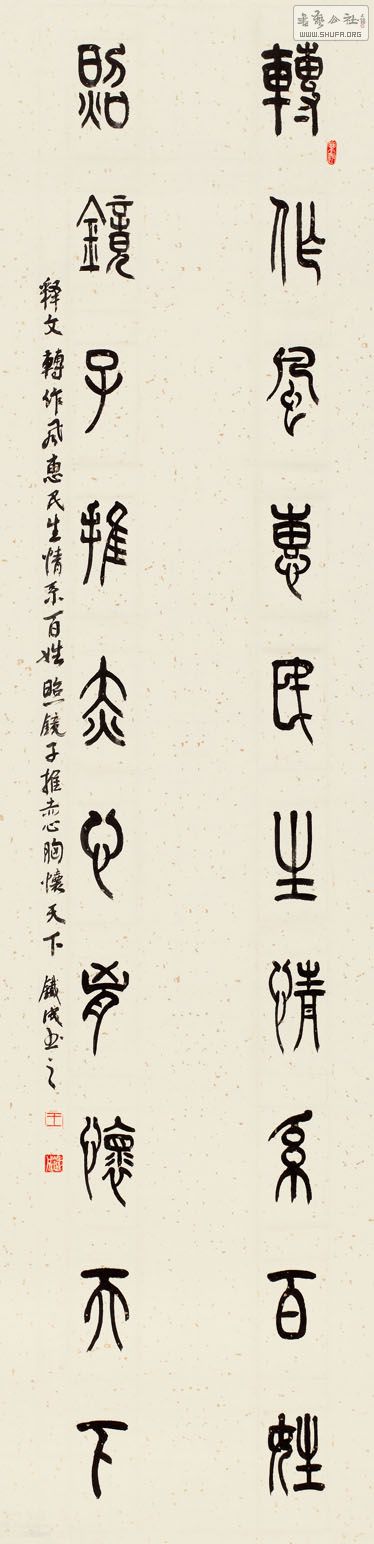 轉作風惠民生情系百姓
照鏡子推赤心胸懷天下
释文 轉作风惠民生情系百姓照鏡子推赤心胸懷天下 鐵成书之
書藝公社
WWW.SHUFA.ORG